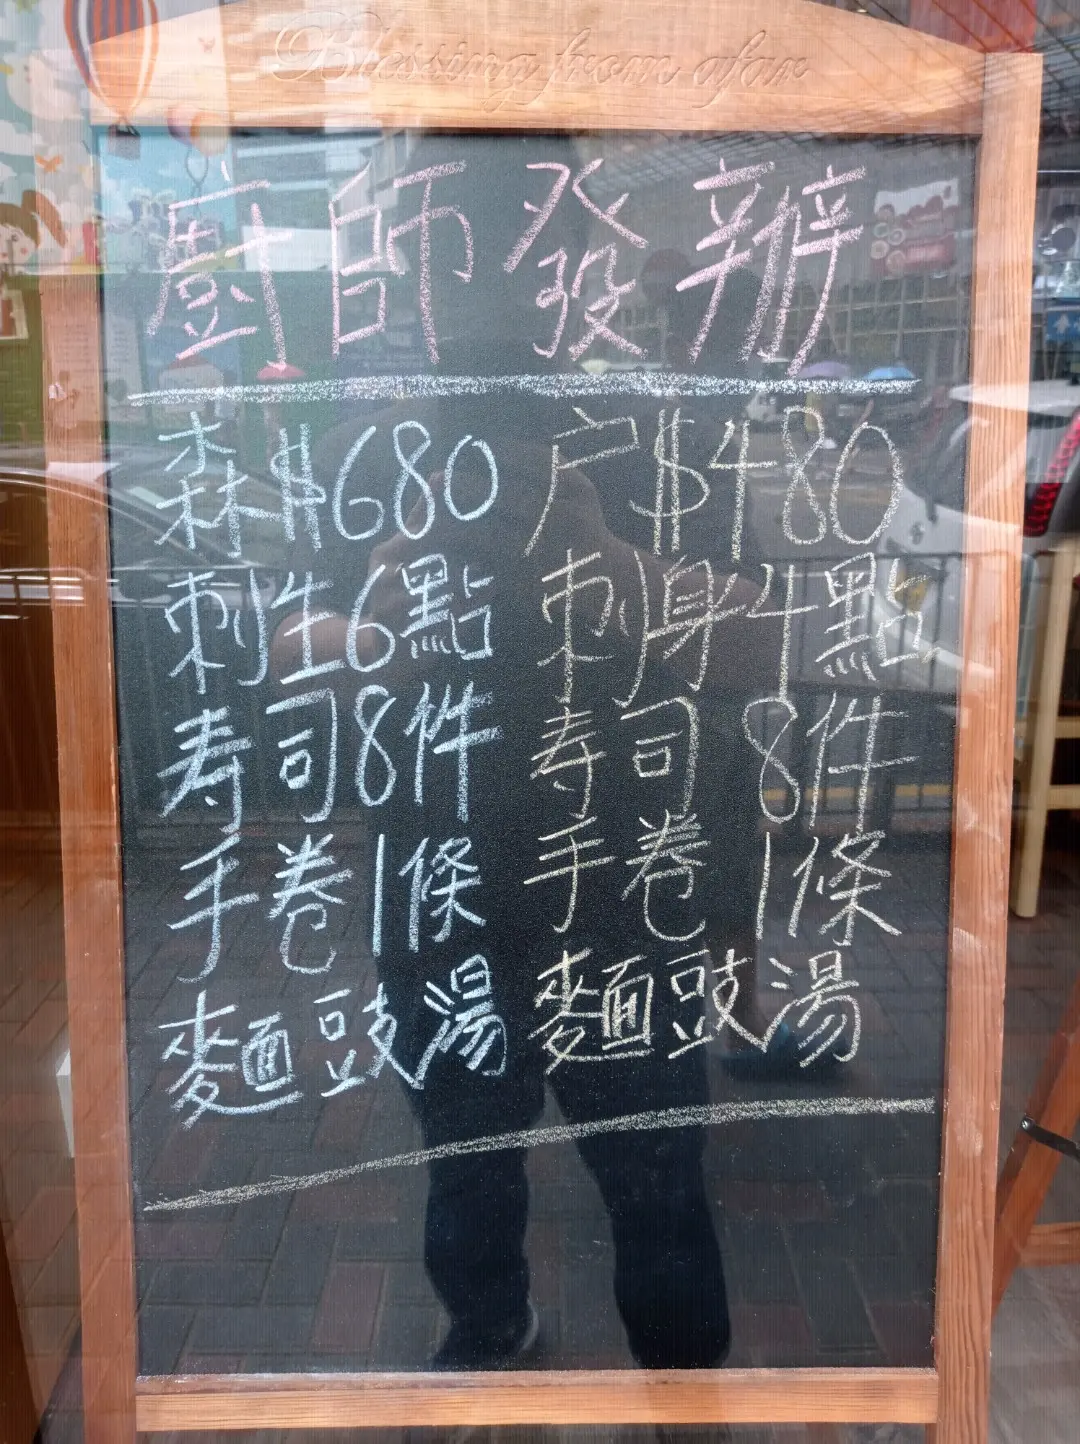 Blessing from afar
廚師發辦
森$680
刺生6點
寿司8件
手卷1條
麵豉湯
户$480
刺身4點
寿司8件
手卷1條
麵豉湯